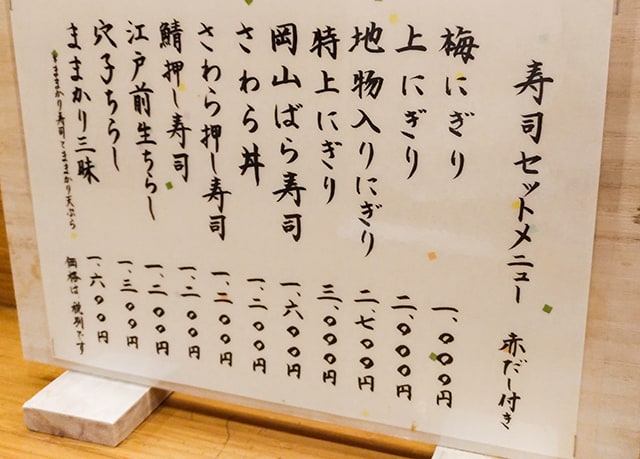 寿司セットメニュー 赤だし付き
梅にぎり 一、〇〇〇円
上にぎり 二、〇〇〇円
地物入りにぎり 二、七〇〇円
特上にぎり 三、〇〇〇円
岡山ばら寿司 一、六〇〇円
さわら丼 一、二〇〇円
さわら押し寿司 一、二〇〇円
鯖押し寿司 一、二〇〇円
江戸前生ちらし 一、二〇〇円
穴子ちらし 一、三〇〇円
ままかり三昧 一、六〇〇円
ままかり寿司とままかり天ぷら 価格は税別です